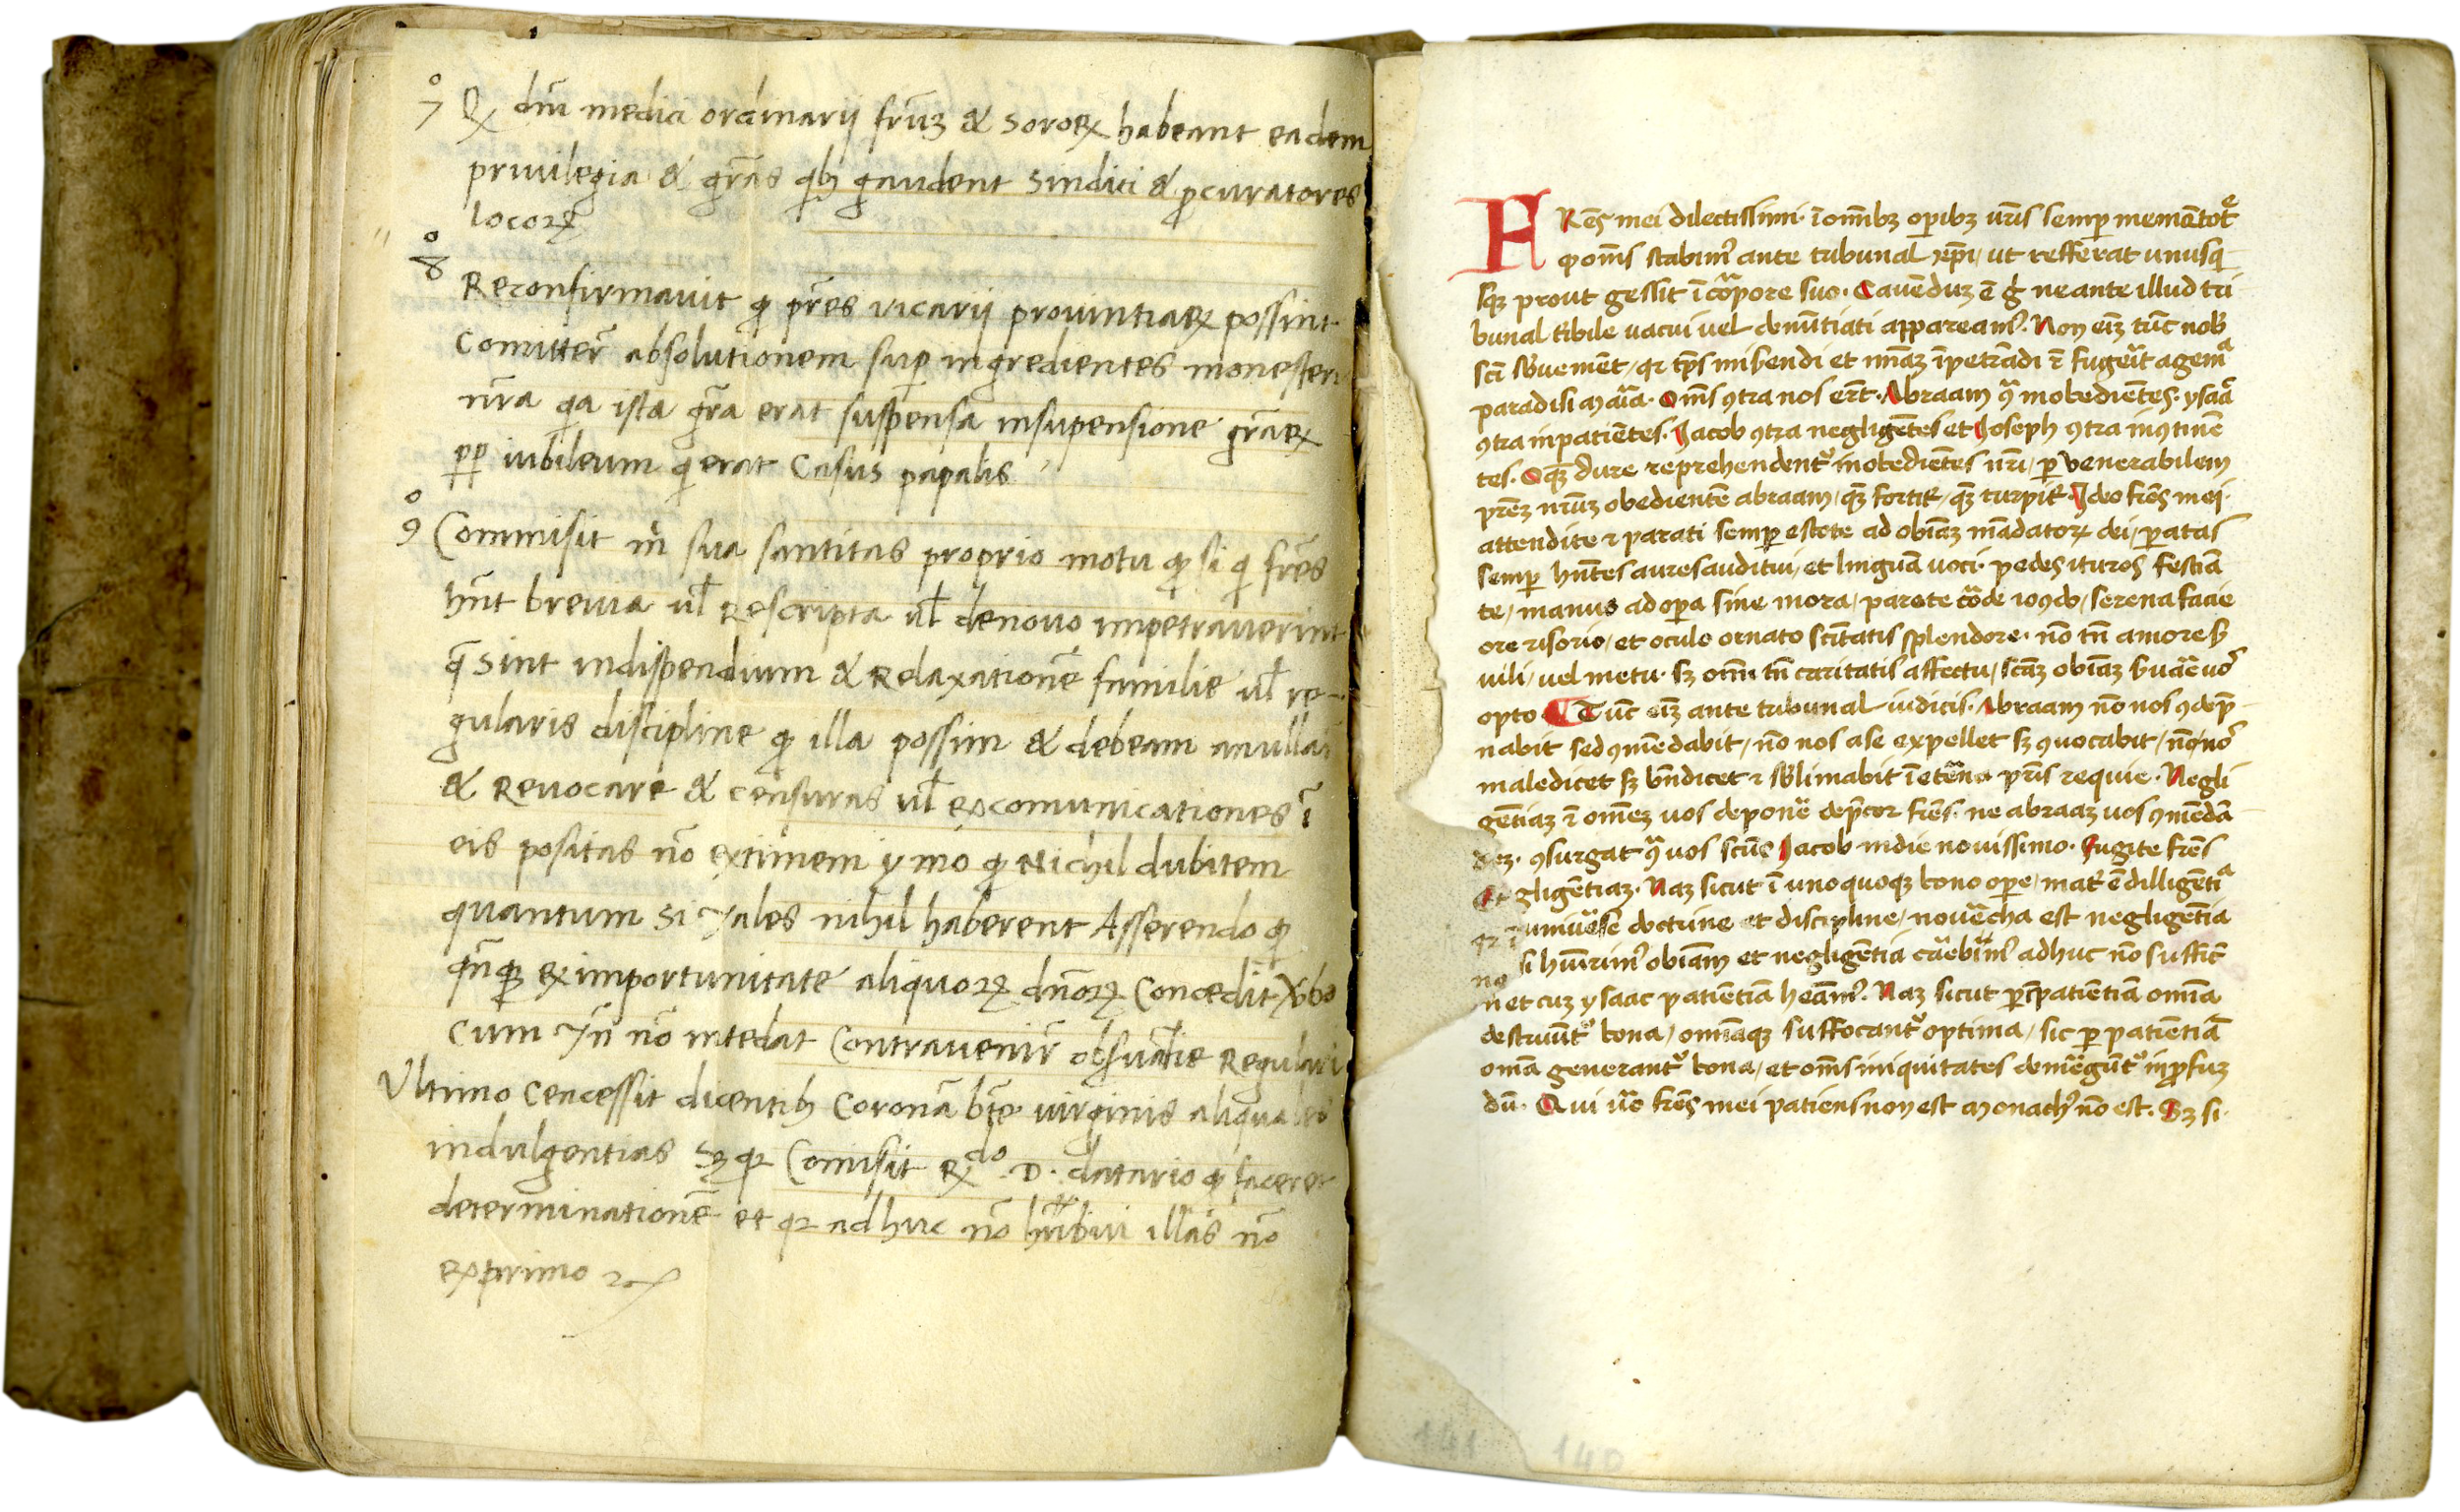 7° Qꝝ dm̃ medici ordinarij frũꝫ & soroꝝ habeant eadem
priuilegia & gr̃as qb; gaudent sindici & ꝓcuratores
locoꝝ
8° Reconfirmauit ꝙ pr̃es vicarij prouintiaꝝ possint
Comitter̃ absolutionem suꝑ ingredientes monesteri
nr̃a qa ista gr̃a erat suspensa insupensione gr̃aꝝ
pp̱ iubileum q erat Casus papalis
9° Commisit m̃ sua santitas proprio motu ꝙ si q fr̃es
hñt breuia ul̃ Rescripta ul̃ denouo impetrauerint
q̃ sint indispendium & Relaxationẽ familie ul̃ re-
gularis discipline ꝙ illa possim & debeam anullar
& Reuocare & censuras ul̃ excomunicationes ĩ
eis positas nõ extimem ymo ꝙ Nichil dubitem
quantum si tales nihil haberent Asserendo ꝙ
qñqꝫ ex importunitate aliquoꝝ dñoꝝ Concedit
cum tñ nõ intedat Contrauenir̃ obsuãtie Regulari
Ultimo Concessit dicentib; Coronã bt̃e virginis aliquales
indulgentias Sꝫ qꝛ Comisit Rdo .D. datario ꝙ faceret
determinationẽ et qꝛ adhuc nõ illas nõ
exprimo
FRẽs mei dilectissimi· ĩ omĩbꝫ oꝑibꝫ ur̃is semꝑ memẽtote
ꝙ om̃s stabim᷒ ante tribunal xp̃i/ ut refferat unusq
sqꝫ prout gessit ĩ corpore suo· Cauẽduꝫ ẽ ne ante illud tri
bunal tibile uacui uel denũtiati appeream᷒. Non eĩꝫ tũc nob̃
et ueniã ĩpetrãdi
paradisi Om̃s ꝯtra nos ert̃· Abraam ꝯ̃ inobediẽtes· ysaac
ꝯtra inpatiẽtes· Jacob ꝯtra negligẽtes et Joseph ꝯtra inꝯtinẽ
tes· O qꝫ dure reprehendent᷒ inobediẽtes nr̃i/ ꝑ venerabilem
pr̃eꝫ nr̃uꝫ obedientẽ abraam/ qꝫ fortit̃/ qꝫ turpit̃· Ideo fr̃es mei·
attendite ⁊ parati semꝑ estote ad obĩaꝫ mãdatoꝝ dei/ ꝑatas
semꝑ hñtes aures auditui/ et linguã uoci· pedes ituros festiã
te/ manus ad oꝑa sine mora/ parate corde iocũdo/ serena facie
ore risorio/ et oculo ornato scĩtatis splendore· nõ tñ amore s
uili/ uel metu· sꝫ om̃i tñ caritatis affectu/ scãꝫ obĩaꝫ suãe uos
opto ¶ Tũc eĩꝫ ante tribunal iudicis· Abraam nõ nos ꝯdep̃
nabit sed ꝯmẽdabit/ nõ nos a se expellet sꝫ ꝯuocabit/ nõ nos
maledicet sꝫ bñdicet ⁊ sublimabit ĩ etẽna pr̃is requie· Negli
gẽtiaꝫ ⁊ omẽꝫ uos deponẽ dep̃cor fr̃es· ne abraaꝫ uos ꝯmẽdã
deꝫ· ꝯsurgat ꝯ̃ uos scũs Jacob in die nouissimo· Fugite fr̃es
negligẽtiaꝫ· Naꝫ sicut ĩ unoquoqꝫ bono oꝑe/ mat̃ ẽ dilligẽtia
uniuẽse doctrine et discipline/ nouẽcha est negligẽtia
si huĩrim᷒ obĩam et negligẽtia carebim᷒ adhuc nõ suffic̃
n̄ et cuꝫ ysaac patiẽtiã heãm᷒. Naꝫ sicut ꝑ ĩpatiẽtiã omĩa
destruũt᷒ bona/ omĩaqꝫ suffocant᷒ optima/ sic ꝑ patiẽtiã
omĩa generant᷒ bona/ et om̃s iniquitates demẽgũt᷒ in ꝓfuꝫ
dũ· Qui uero fr̃es mei patiens non est monach᷒ nõ est· Sꝫ si·
141 140